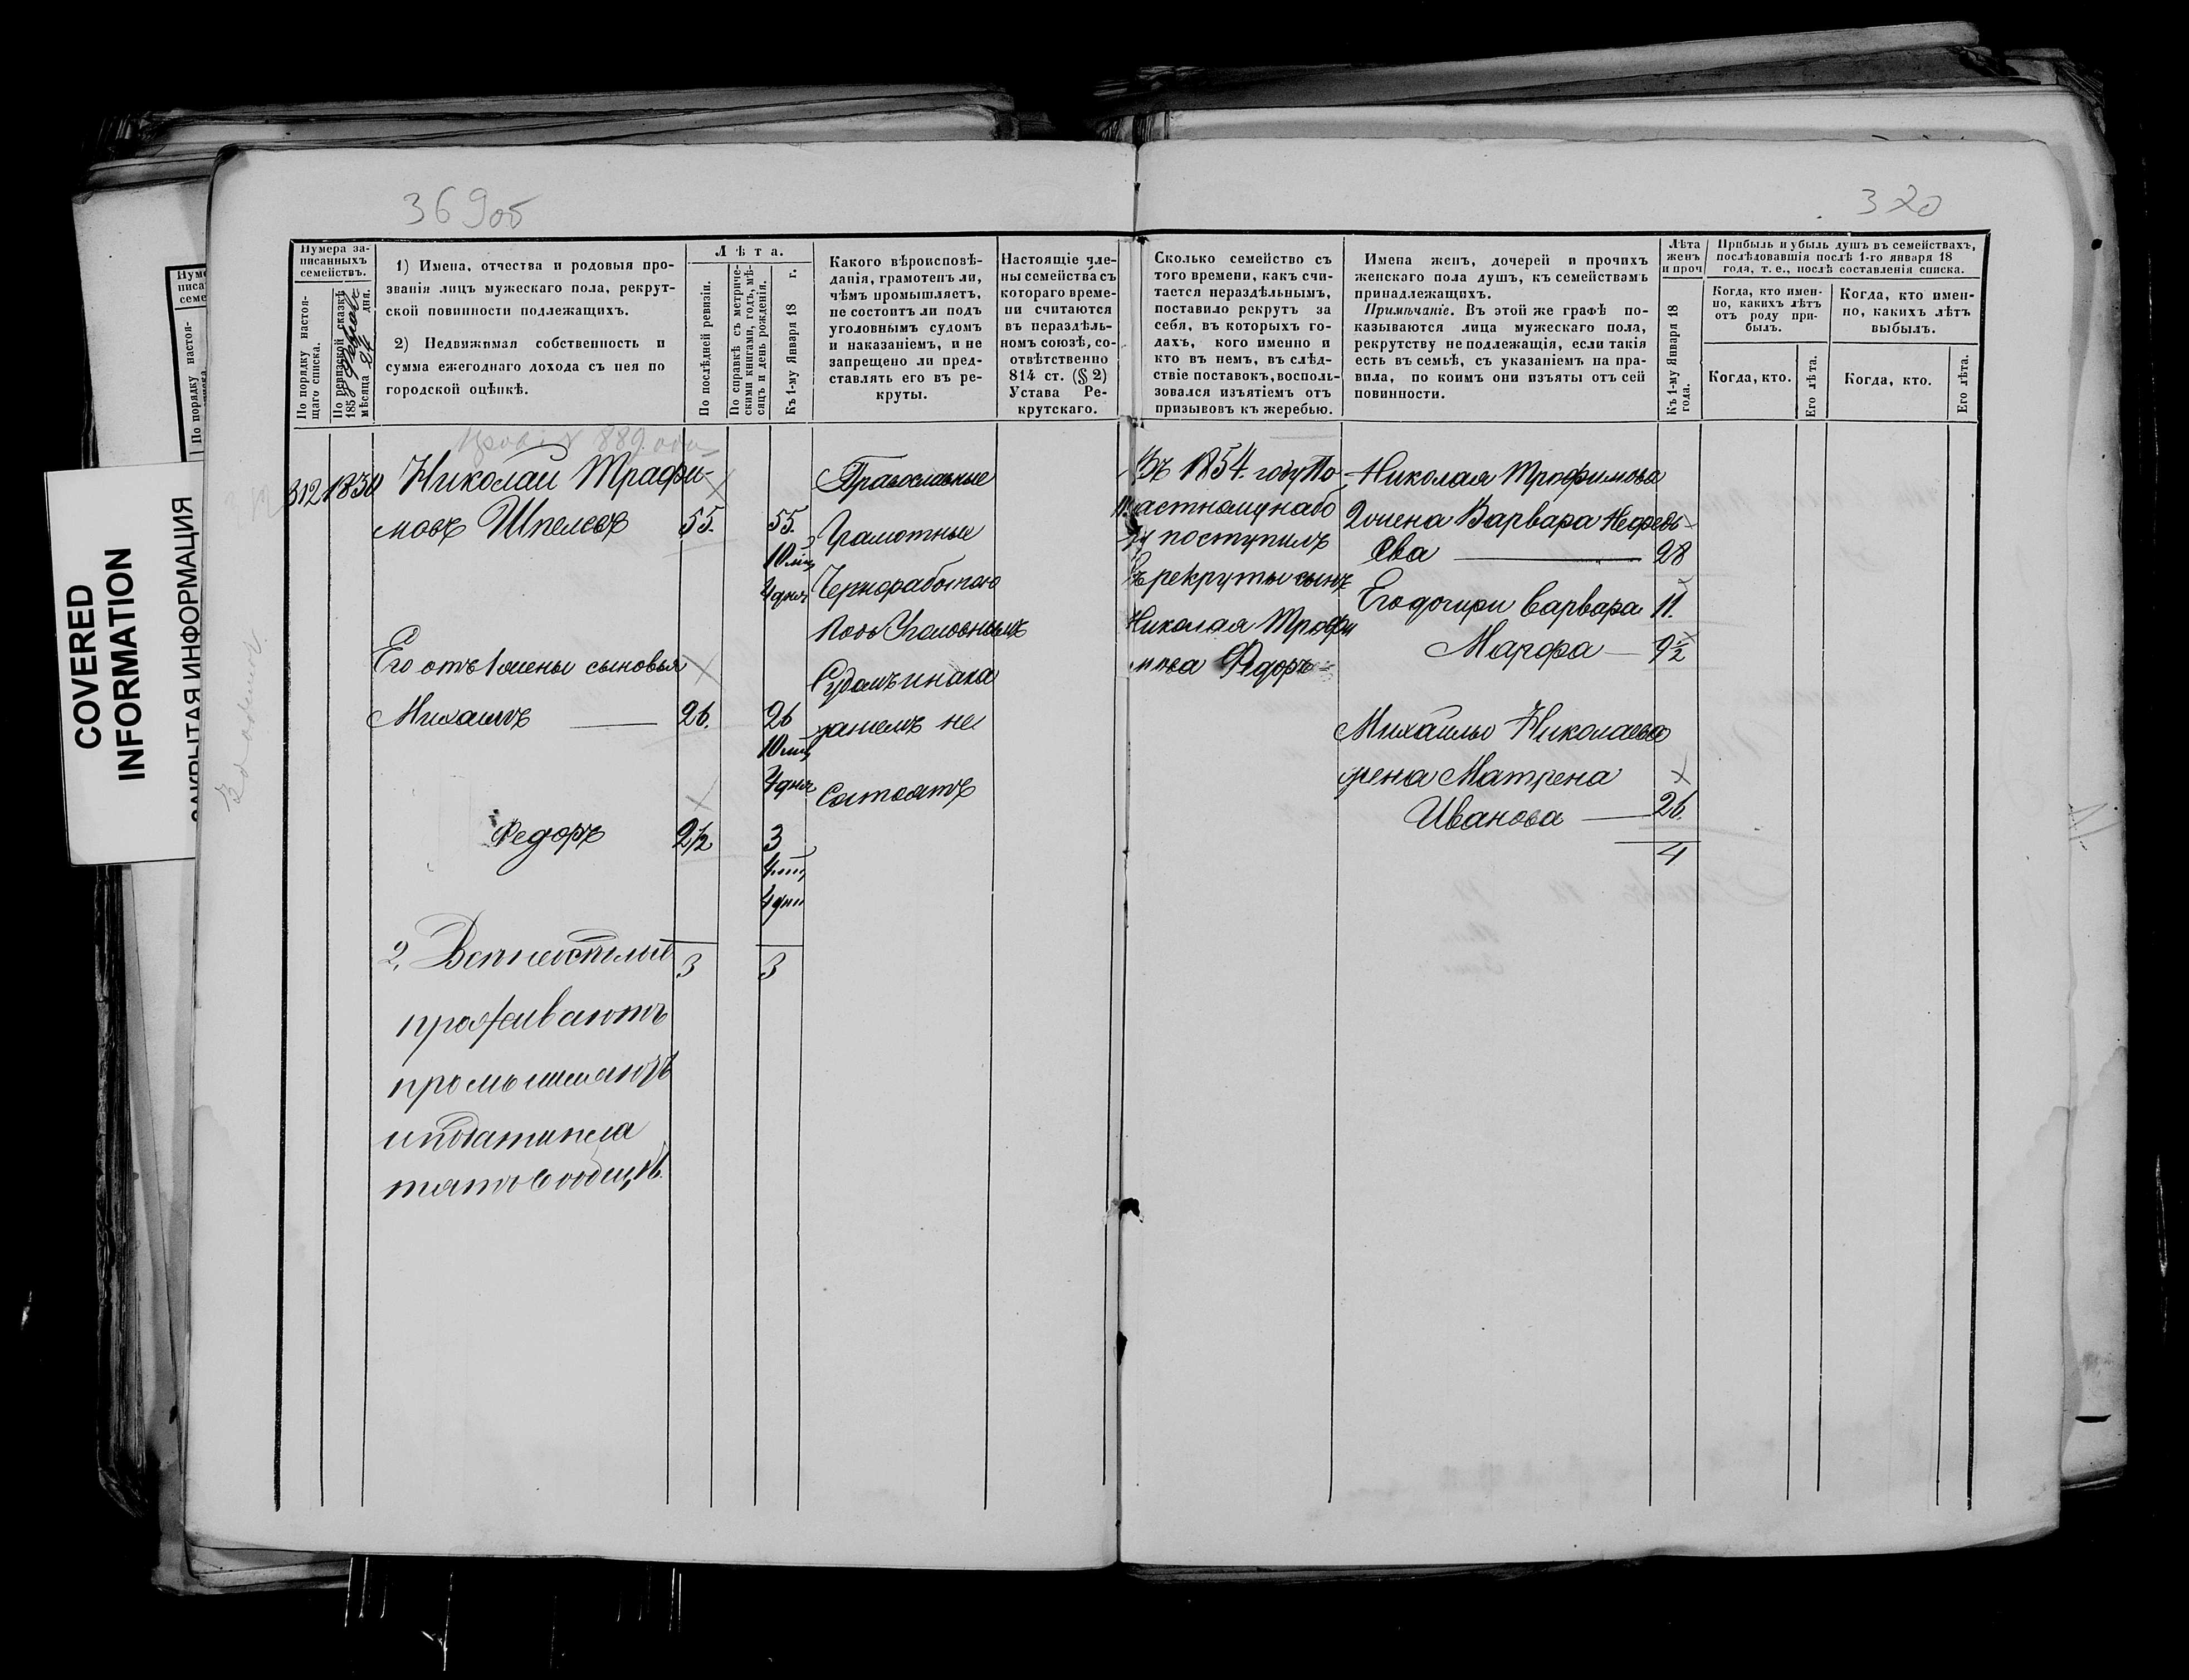 369об
320
Нумера за-
писанныхъ
семействъ.
По порядку настоя-
щаго списка.
По ревизской сказкѣ
185
мѣсяца 24 дня.
1) Имена, отчества и родовыя про-
званія лицъ мужескаго пола, рекрут-
ской повинности подлежащихъ.
2) Недвижимая собственность и
сумма ежегоднаго дохода съ нея по
городской оцѣнкѣ.
Лѣта.
По послѣдней ревизіи.
По справкѣ съ метриче-
скими книгами, годъ, мѣ-
сяцъ и день рожденія.
Къ 1-му Января 18 г.
Какого вѣроисповѣ-
данія, грамотенъ ли,
чѣмъ промышляетъ,
не состоитъ ли подъ
уголовнымъ судомъ
и наказаніемъ, и не
запрещено ли пред-
ставлять его въ ре-
круты.
Настоящіе чле-
ны семейства съ
котораго време-
ни считаются
въ нераздѣль-
номъ союзѣ, со-
отвѣтственно
814 ст. (§ 2)
Устава Ре-
крутскаго.
Сколько семейство съ
того времени, какъ счи-
тается нераздѣльнымъ,
поставило рекрутъ за
себя, въ которыхъ го-
дахъ, кого именно и
кто въ немъ, въ слѣд-
ствіе поставокъ, восполь-
зовался изъятіемъ отъ
призывовъ къ жеребью.
Имена женъ, дочерей и прочихъ
женскаго пола душъ, къ семействамъ
принадлежащихъ.
Примѣчаніе. Въ этой же графѣ по-
казываются лица мужескаго пола,
рекрутству не подлежащія, если такія
есть въ семьѣ, съ указаніемъ на пра-
вила, по коимъ они изъяты отъ сей
повинности.
Лѣта
женъ
и проч
Къ 1-му Января 18
года.
Прибыль и убыль душъ въ семействахъ,
послѣдовавшія послѣ 1-го января 18
года, т. е., послѣ составленія списка.
Когда, кто имен-
но, какихъ лѣтъ
отъ роду при-
былъ.
Когда, кто.
Его лѣта.
Когда, кто имен-
но, какихъ лѣтъ
выбылъ.
Когда, кто.
Его лѣта.
312
Николай Трафи-
мовъ Шпелевъ 55. 55.
10 мц
4 дня
Его отъ 1 жены сыновья
Михаилъ 26. 26
10 мц
4 дня
Федоръ 2 1/2 3
4 мц
4 дни
3 3
2.
проживаютъ
промышляютъ
Православные
Грамотные
Чернорабочею
Подъ Уголовнымъ
Судомъ и нака
занiемъ не
Состоятъ
Въ 1854. году По
частному набо
ру поступилъ
Въ рекруты сынъ
Николая Трофи
мова Федоръ
Николая Трофимова
2 жена Варвара Нефедь-
ева 28
Его дочири Варвара 11.
Марфа 9 1/2
Михайлы Николаева
жена Матрена
Иванова 26.
4
COVERED
INFORMATION
ЗАКРЫТАЯ ИНФОРМАЦИЯ